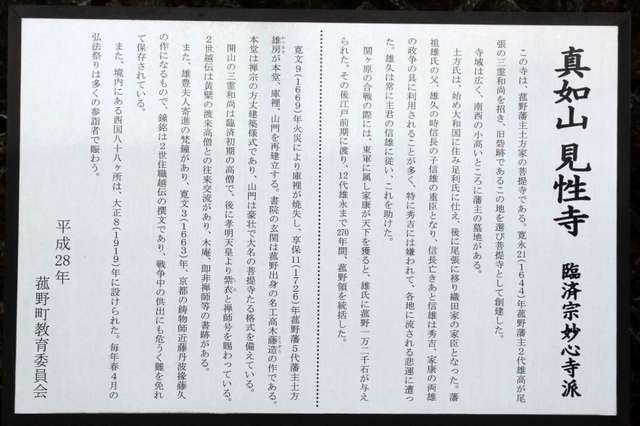 真如山 見性寺 臨済宗妙心寺派
この寺は、菰野藩主土方家の菩提寺である。寛永21(1644)年菰野藩主2代雄高が尾
張の三霊和尚を招き、旧砦跡であるこの地を選び菩提寺として創建した。
寺域は広く、南西の小高いところに藩主の墓地がある。
土方氏は、始め大和国に住み足利氏に仕え、後に尾張に移り織田家の家臣となった。藩
祖雄氏の父、雄久の時信長の子信雄の重臣となり、信長亡きあと信雄は秀吉、家康の両雄
の政争の具に利用されることが多く、特に秀吉には嫌われて、各地に流される悲運に遭っ
た。雄久は常に主君の信雄に従い、これを助けた。
関ヶ原の合戦の際には、東軍に属し家康が天下を獲ると、雄氏に菰野一万二千石が与え
られた。その後江戸前期に渡り、12代雄永まで270年間、菰野領を統括した。
寛文9(1669)年火災により庫裡が焼失し、享保11(1726)年菰野藩5代藩主土方
雄房が本堂、庫裡、山門を再建立する。書院の玄関は菰野出身の名工高木藤造の作である。
本堂は禅宗の方丈建築様式であり、山門は豪壮で大名の菩提寺たる格式を備えている。
開山の三霊和尚は臨済初期の高僧で、後に孝明天皇より紫衣と禅師号を賜わっている。
2世越伝は黄檗の渡来高僧との往来交流があり、木庵、即非禅師等の書跡がある。
また、雄豊夫人寄進の梵鐘があり、寛文3(1663)年、京都の鋳物師近藤丹波掾藤久
の作になるもので、鐘銘は2世住職越伝の撰文であり、戦争中の供出にも危うく難を免れ
て保存されている。
また、境内にある西国八十八ヶ所は、大正8(1919)年に設けられた。毎年春4月の
弘法祭りは多くの参詣者で賑わう。
平成28年
菰野町教育委員会